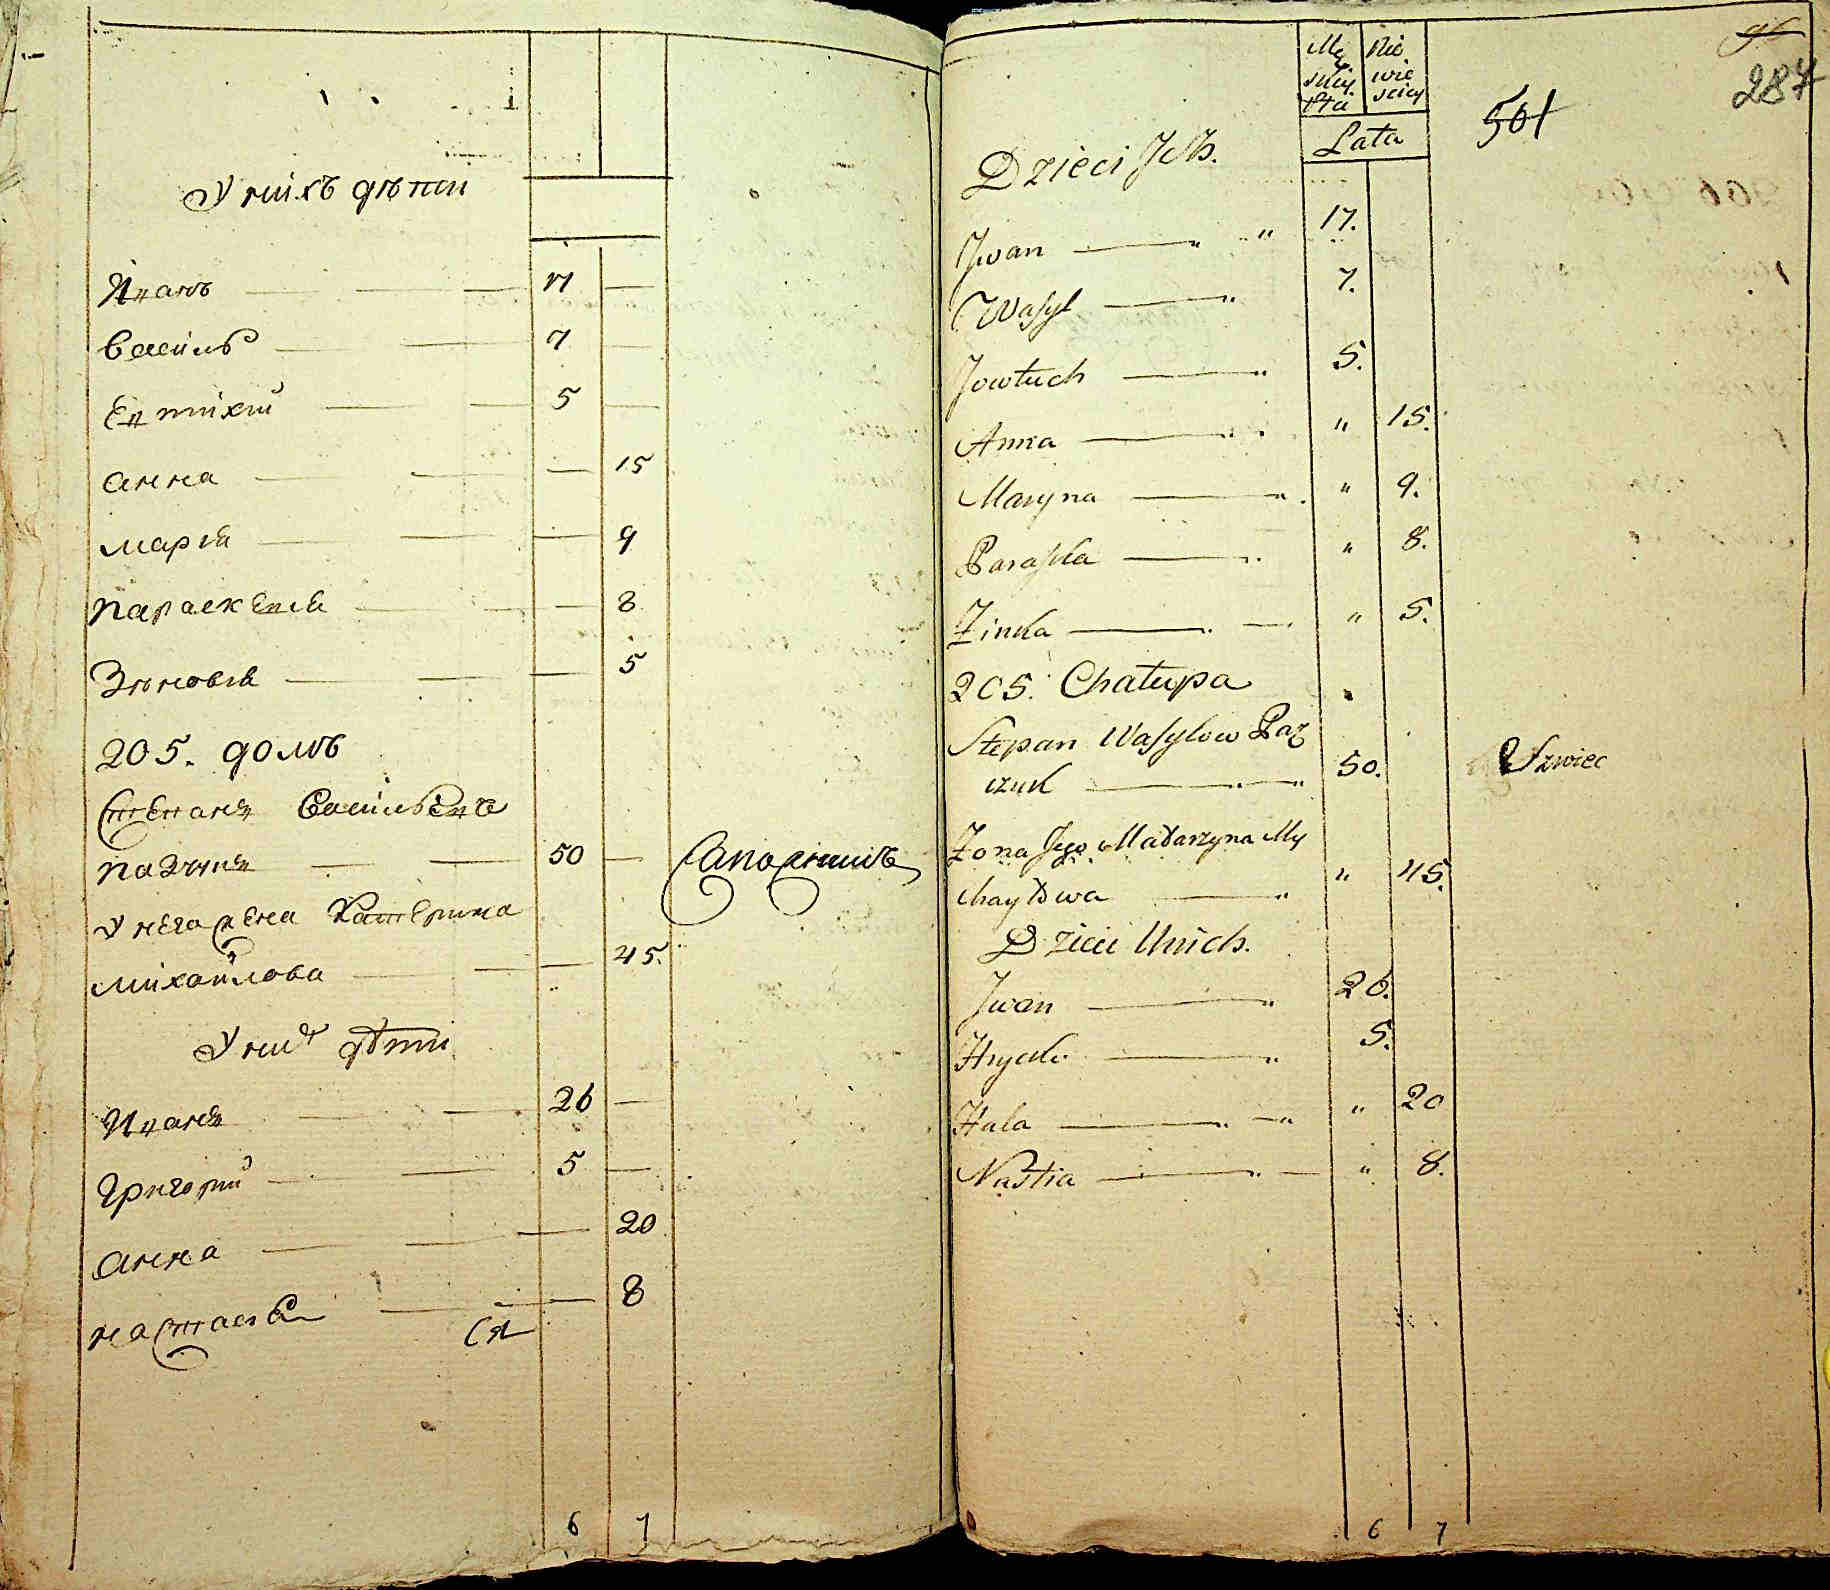 У нихъ дѣти
Иванъ — 17 —
Василь — 7 —
Евтихий — 5 —
Анна — 15
Мария — 9
Параскевия — 8
Зѣновия — 5
205. домъ
Степанъ Васильевъ
Пазчукъ — 50 — Сапожникъ
У него жена Катерина
Михайлова — 45.
У них дѣти
Иванъ — 26 —
Григорий — 5 —
Анна — 20
Настасия — 8
6 7
96
287
501
Mę
skiey
Nie
wie
sciey
Lata
Dzieci Ich.
Jwan — " 17.
Wasyl — " 7.
Jowtuch — " 5.
Anna — " 15.
Maryna — " 9.
Paraska — " 8.
Zinka — " 5.
205. Chałupa
Stepan Wasylow Paz
czuk — " 50. Szwiec
Żona Jego Katarzyna My
chayłowa — " 45.
Dzieci Unich.
Jwan — " 26.
Hrycko — " 5.
Hala — " 20
Nastia — " 8.
6 7